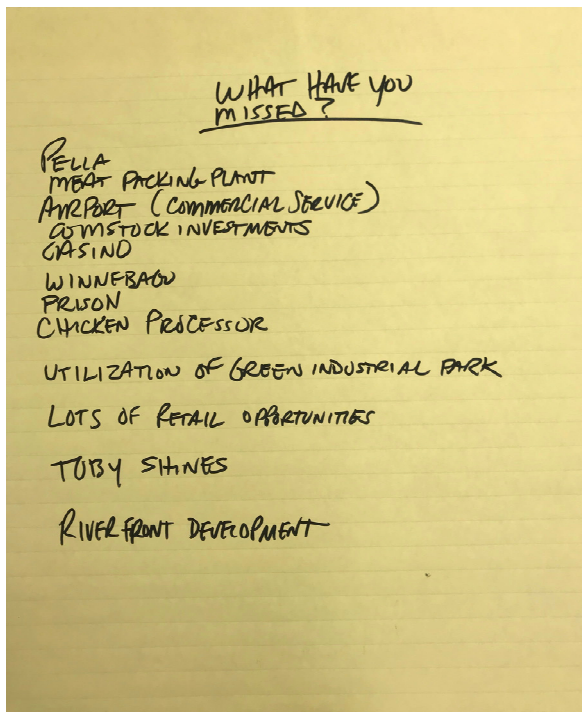 WHAT HAVE YOU
MISSED?
PELLA
MEAT PACKING PLANT
AIRPORT (COMMERCIAL SERVICE)
COMSTOCK INVESTMENTS
CASINO
WINNEBAGO
PRISON
CHICKEN PROCESSOR
UTILIZATION OF GREEN INDUSTRIAL PARK
LOTS OF RETAIL OPPORTUNITIES
TOBY SHINES
RIVERFRONT DEVELOPMENT